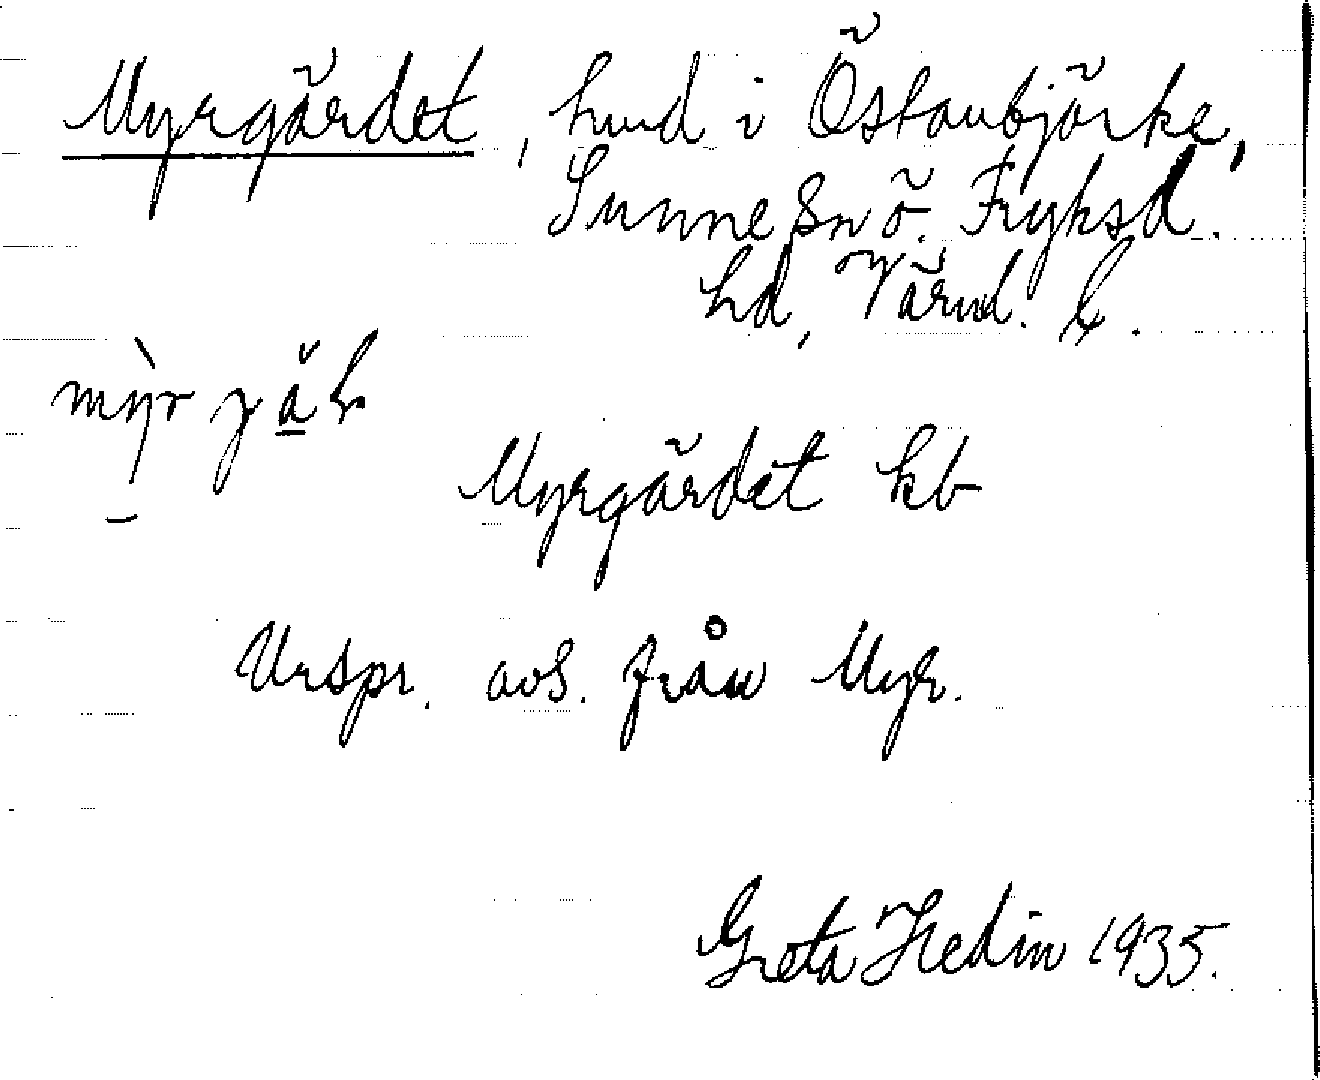 Myrgärdet, hmd i Östanbjörke,
Sunne sn ö. Fryksd.
hd, Värml. l.
Myrgärdet kb
Urspr. avs. från Myr.
Greta Hedin 1935.